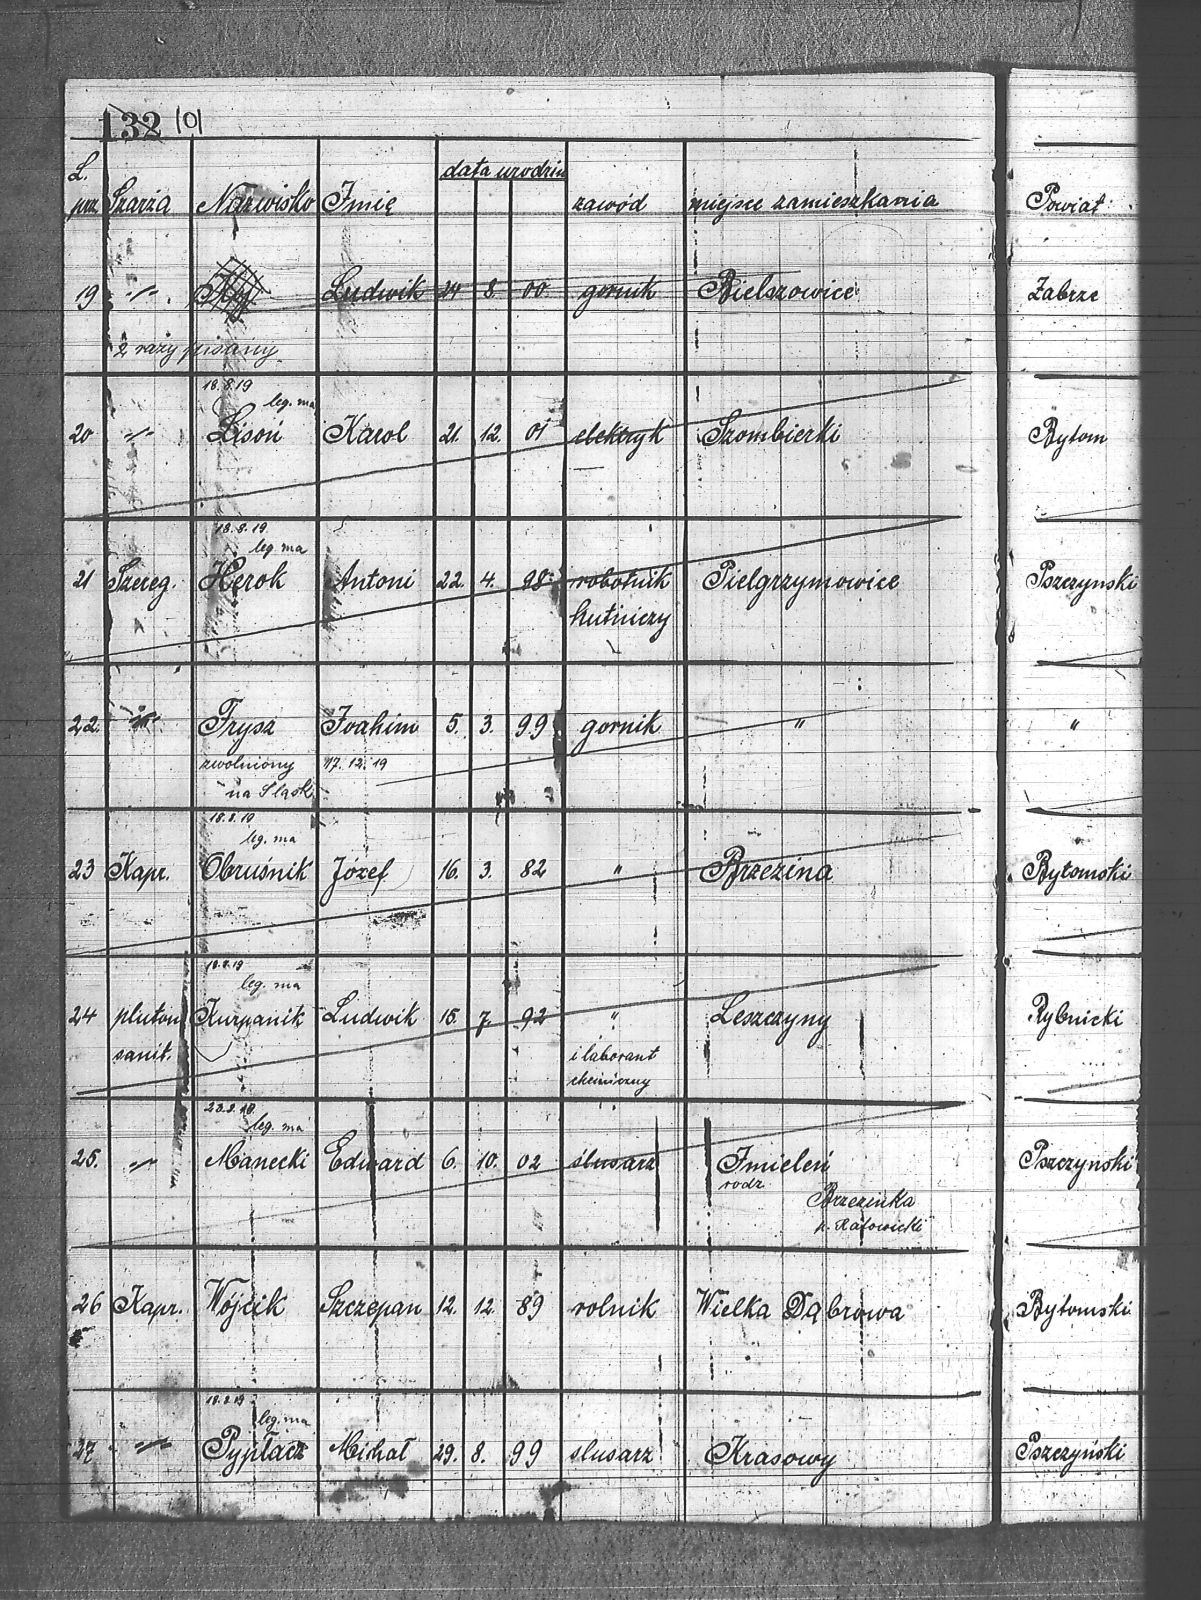 132 101
L. prz. Szarża Nazwisko Imię data urodzin zawód miejsce zamieszkania Powiat
19 -"- Ludwik 24 8. 00. gornik Bielszowice Zabrze
2 razy pisany
18.8.19
leg. ma
20 -"- Lisoń Karol 21. 12. 01 elektryk Szombierki Bytom
18.8.19.
leg. ma
21 Szereg. Herok Antoni 22. 4. 98. robotnik Pielgrzymowice Pszczynski
hutniczy
22. -"- Frysz Joahim 5. 3. 99 gornik " "
zwolniony 17.12.19
na Sląsk
18.8.19
leg. ma
23 Kapr. Obruśnik Józef 16. 3. 82 " Brzezina Bytomski
18.8.19
leg. ma
24 pluton Kurpanik Ludwik 15. 7. 92 " Leszczyny Rybnicki
sanit. i laborant
chemiczny
23.8.19
leg. ma
25. -"- Manecki Edward 6. 10. 02 slusarz Imieleń Pszczynski
rodz
Brzezinka
p. Katowicki
26 Kapr. Wójcik Szczepan 12. 12. 89 rolnik Wielka Dąbrowa Bytomski
18.8.19
leg. ma
27 -"- Pypłacz Michał 29. 8. 99 slusarz Krasowy Pszczyński